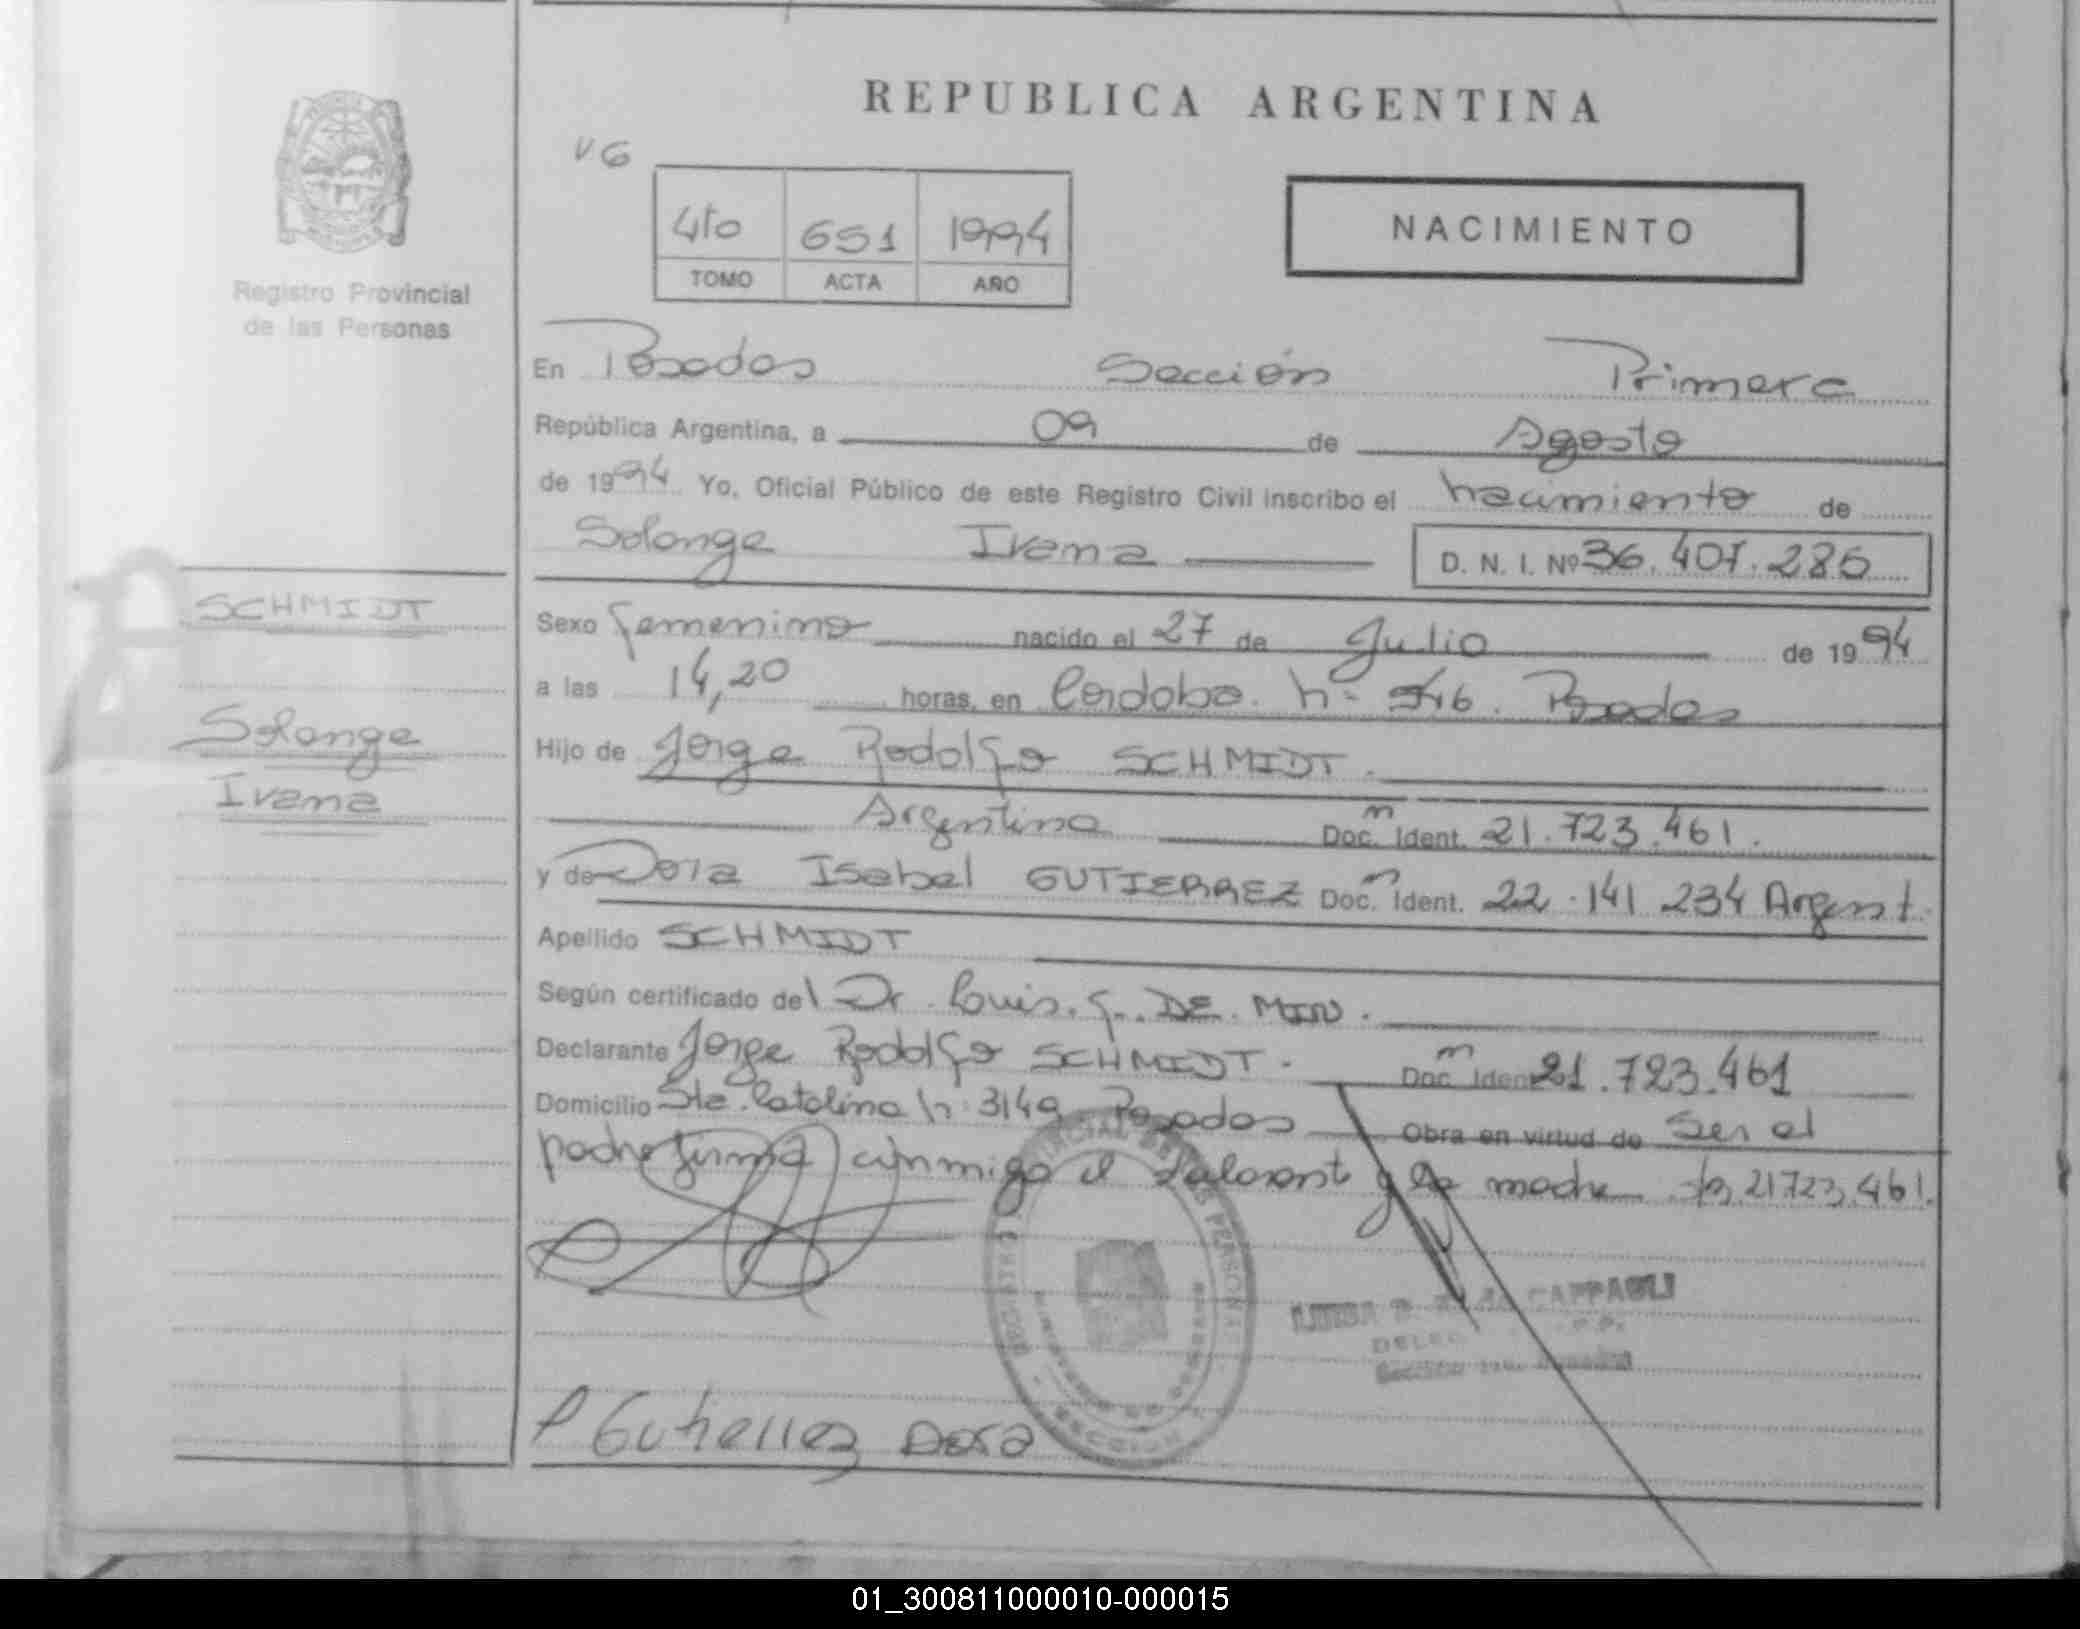 REPUBLICA ARGENTINA
VG
4to 651 1994
TOMO ACTA AÑO
NACIMIENTO
Registro Provincial
de las Personas
En Posadas Sección Primera
República Argentina, a 09 de Agosto
de 1994 Yo, Oficial Público de este Registro Civil inscribo el nacimiento de
Solange Ivana D. N. I. Nº 36.407.285
SCHMIDT
Solange
Ivana
Sexo femenino nacido el 27 de Julio de 1994
a las 14,20 horas, en Cordoba. n- 546. Posadas
Hijo de Jorge Rodolfo SCHMIDT.
Argentino Doc. Ident. 21.723.461.
y de Dora Isabel GUTIERREZ Doc. Ident. 22.141 234 Argent.
Apellido SCHMIDT
Según certificado del Dr. Luis. DE. MIN.
Declarante Jorge Rodolfo SCHMIDT. Doc. Ident 21.723.461
Domicilio Sta. Catalina n: 3149 Posadas Obra en virtud de ser el
padre firma conmigo el y la madre 21723.461.
CAPPAGLI
Gutierrez Dora
01_300811000010-000015